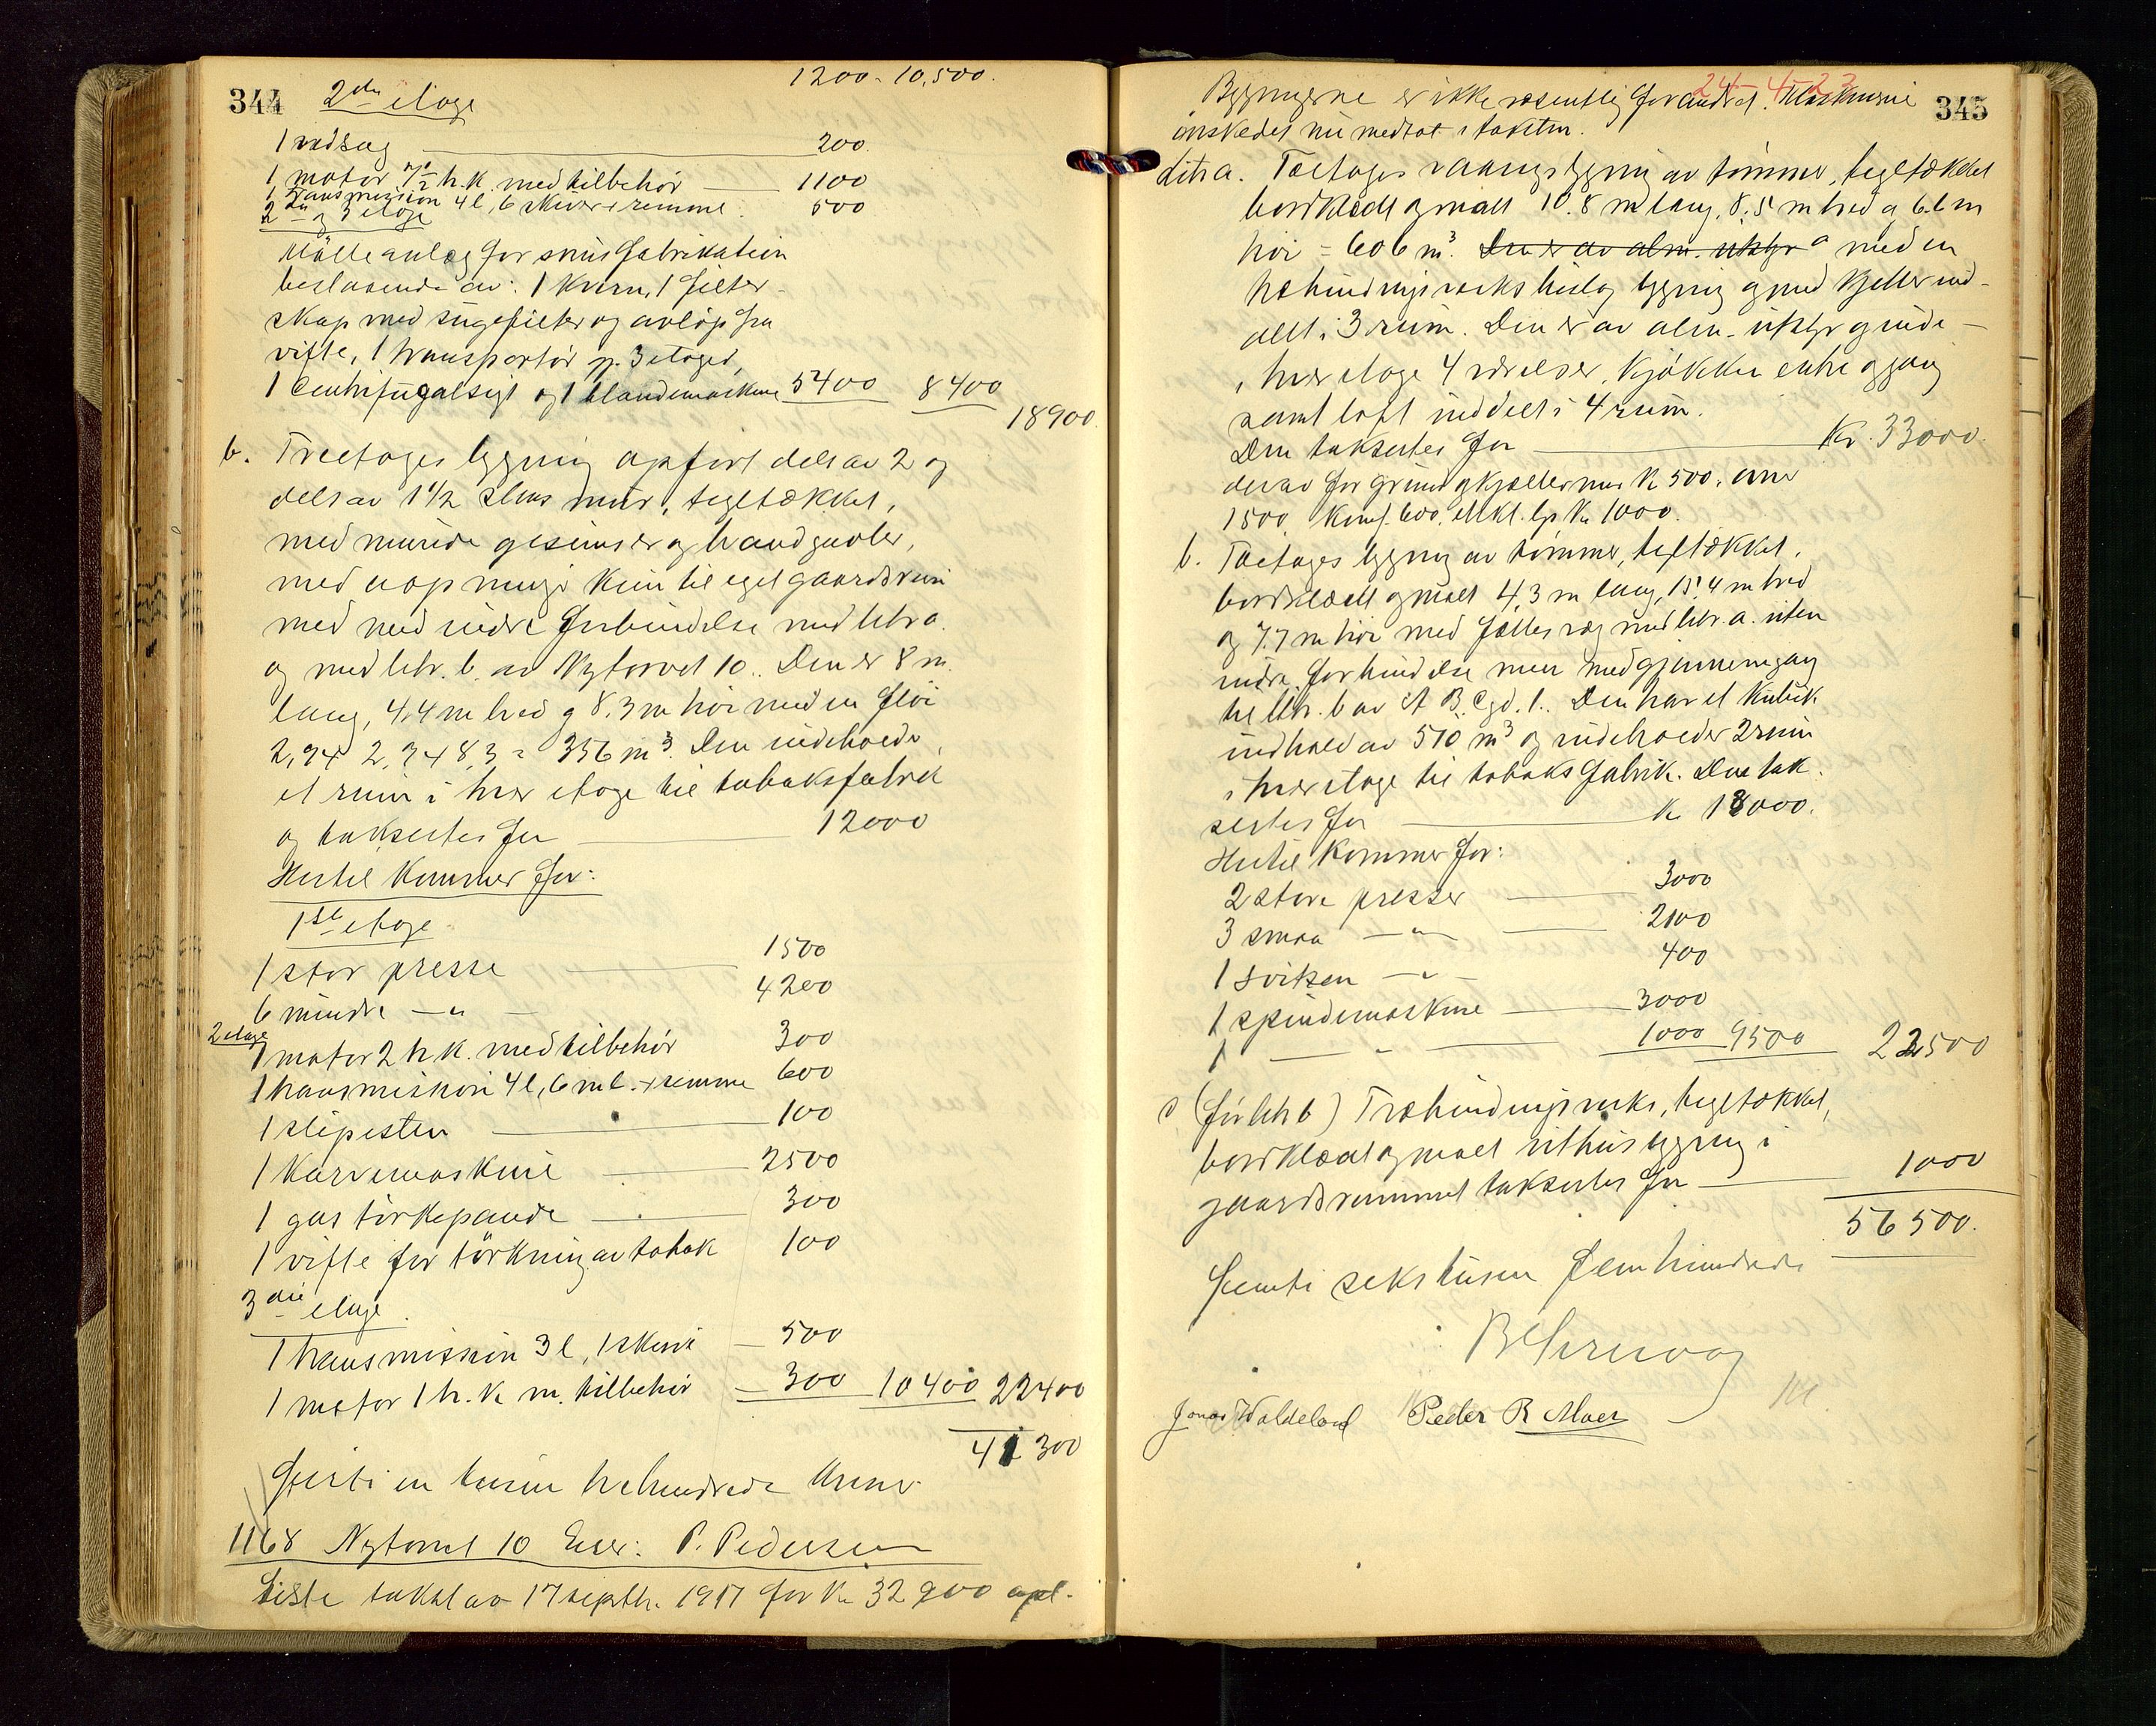 344 2den etage 1200 - 10,500.
1 vedsag 200.
1 motor 7½ h.k. med tilbehör 1100
1 transmission 4 l, 6 skiver + remme. 500
2den og 3 etage
Mölleanlæg for snusfabrikation
bestaaende av: 1 kvern, 1 filter-
skap med sugefilter og avlöp fra
vifte, 1 transportör gj. 3 etager,
1 centrifugalsigt og 1 blandemaskine 5400 8400
18900.
b. Treetages bygning opført dels av 2 og
dels av 1½ stens mur, tegltækket,
med murede gesimser og brandgavler,
med aapninger kun til eget gaardsrum
med med indre forbindelse med litr a.
og med litr. b. av Nytorvet 10.. Den er 8 m.
lang, 4,4 m bred og 8.3 m høi med en fløi
2,74 2,3 4 8,3 = 356 m³. Den indeholder
et rum i hver etage til tobaksfabrik
og taksertes for 12000
Hertil kommer for:
1ste etage
1 stor presse 1500
6 mindre —"— 4200
2 etage
1 motor 2 h.k. med tilbehör 300
1 transmission 4 l, 6 m l. + remme 600
1 slipesten 100
1 karvemaskine 2500
1 gas törkepande 300
1 vifte for törkning av tobak 100
3die etage.
1 transmission 3 l, 1 skive 500
1 motor 1 h.k. m. tilbehör 300 10400 22400
41300
Firti en tusen trehundrede kroner.
1168 Nytorvet 10 Eier: P. Pedersen
Siste takst av 17 septbr. 1917 for kr 32900 opl.
24-4-23
Bygningerne er ikke væsentlig forandret. Maskineri 345
ønskedes nu medtat i taksten.
Litr a. Toetages vaaningsbygning av tømmer, tegltækket
bordklædt og malt 10.8 m lang, 8.5 m bred og 6.6 m
høi = 606 m³. Den er av alm. utstyr og med en
træbindingsverks tilbygning og med kjelder ind-
delt i 3 rum. Den er av alm. utstyr og inde-
i hver etage 4 værelser, kjøkken entre og gang
samt loft inddelt i 4 rum.
Den taksertes for Kr. 33000.
derav for grund og kjældermur kr 500. ovner
1500 komf. 600. elekt. lys kr 1000.
b. Toetages bygning av tømmer, tegltækket,
bordklædt og malt 4,3 m lang, 15,4 m bred
og 7.7 m høi med fælles væg med litr. a. uten
indre forbindelse men med gjennemgang
til litr. b av A B. C gd. 1.. Den har et kubik
indhold av 510 m³ og indeholder 2 rum
i hver etage til tobaksfabrik. Den tak-
sertes for kr 13000.
Hertil kommer for:
2 store presser 3000
3 smaa —"— 2100
400
1 spindemaskine 3000
1 — " — 1000 9500 22500
c (før litr b) Træbindingsverks, tegltækket,
bordklædt og malt uthusbygning i
gaardsrummet taksertes for 1000
56500.
Femti seks tusen femhundrede
Jonas Waldeland Peder R. Moer